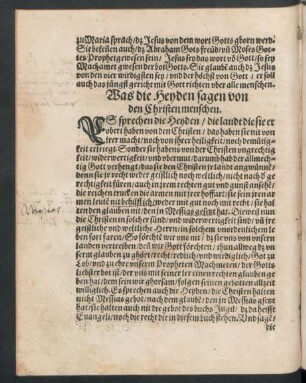 zu Maria sprach/ dz Jesus von dem wort Gotts geborn werd.
Sie bekeñen auch/ dz Abraham Gots freüd/ vñ Moses Got-
tes Prophet gewesen sein/ Jesus sey das wort võ Gott/ so sey
Machamet gwesen der bot Gotts. Sie glaubẽ auch dz Jesus
von den vier wirdigsten sey/ vnd der höchst von Gott/ er soll
auch das jüngst gericht mit Gott richten vber alle menschen.
Was die Heyden sagen von
den Christen menschen.
ES sprechen die Heyden/ die landt die sie er
obert haben von den Christen/ das haben sie nit von
jrer macht/ noch von jhrer heiligkeit/ noch demütig-
keit erkriegt. Sonder sie habens von der Christen vngerechtig
keit/ widerwertigkeit/ vnd vbermut/ darumb hab der allmech-
tig Gott verhengt/ das sie den Christen jr landt angwinnẽ/
denn sie je recht weder geistlich noch weltlich/ nicht nach d' ge
rechtigkeit füren/ auch in jrem rechten gut vnd gunst ansehẽ/
die reichen trucken die armen mit jrer hoffart/ sie sein jren ar-
men leutẽ nit behilfflich/ weder mit gut noch mit recht/ sie hal
ten den glauben nit den jn Messias gesetzt hat. Dieweil nun
die Christen in solcher sünd vnd widerwertigkeit sind/ vñ jre
geistliche vnd weltliche Herrn/ in solchem vnordenlichem le
ben fort faren/ So förcht wir vns nit/ dz sie vns von vnsern
landen vertreiben/ deñ wir Gott förchten/ thun allweg dz vn
serm glauben zu ghört/ recht/ redlich/ vnd wirdiglich/ Got zu
Lob/ vnd zu ehr vnserm Propheten Machmeten/ der Gotts
liebster bot ist/ der vns mit seiner ler einen rechten glauben ge
ben hat/ dem sein wir ghorsam/ folgen seinen gebotten allzeit
williglich. So sprechen auch die Heyden/ die Christen hatten
nicht Messias gebot/ nach dem glaubẽ/ den jn Messias gsetzt
hat/ sie haltens auch nit die gebot des buchs Inzil/ dz da heisst
Euangeli/ noch die recht die in disem buch stehen. Vnd sagẽ/
die